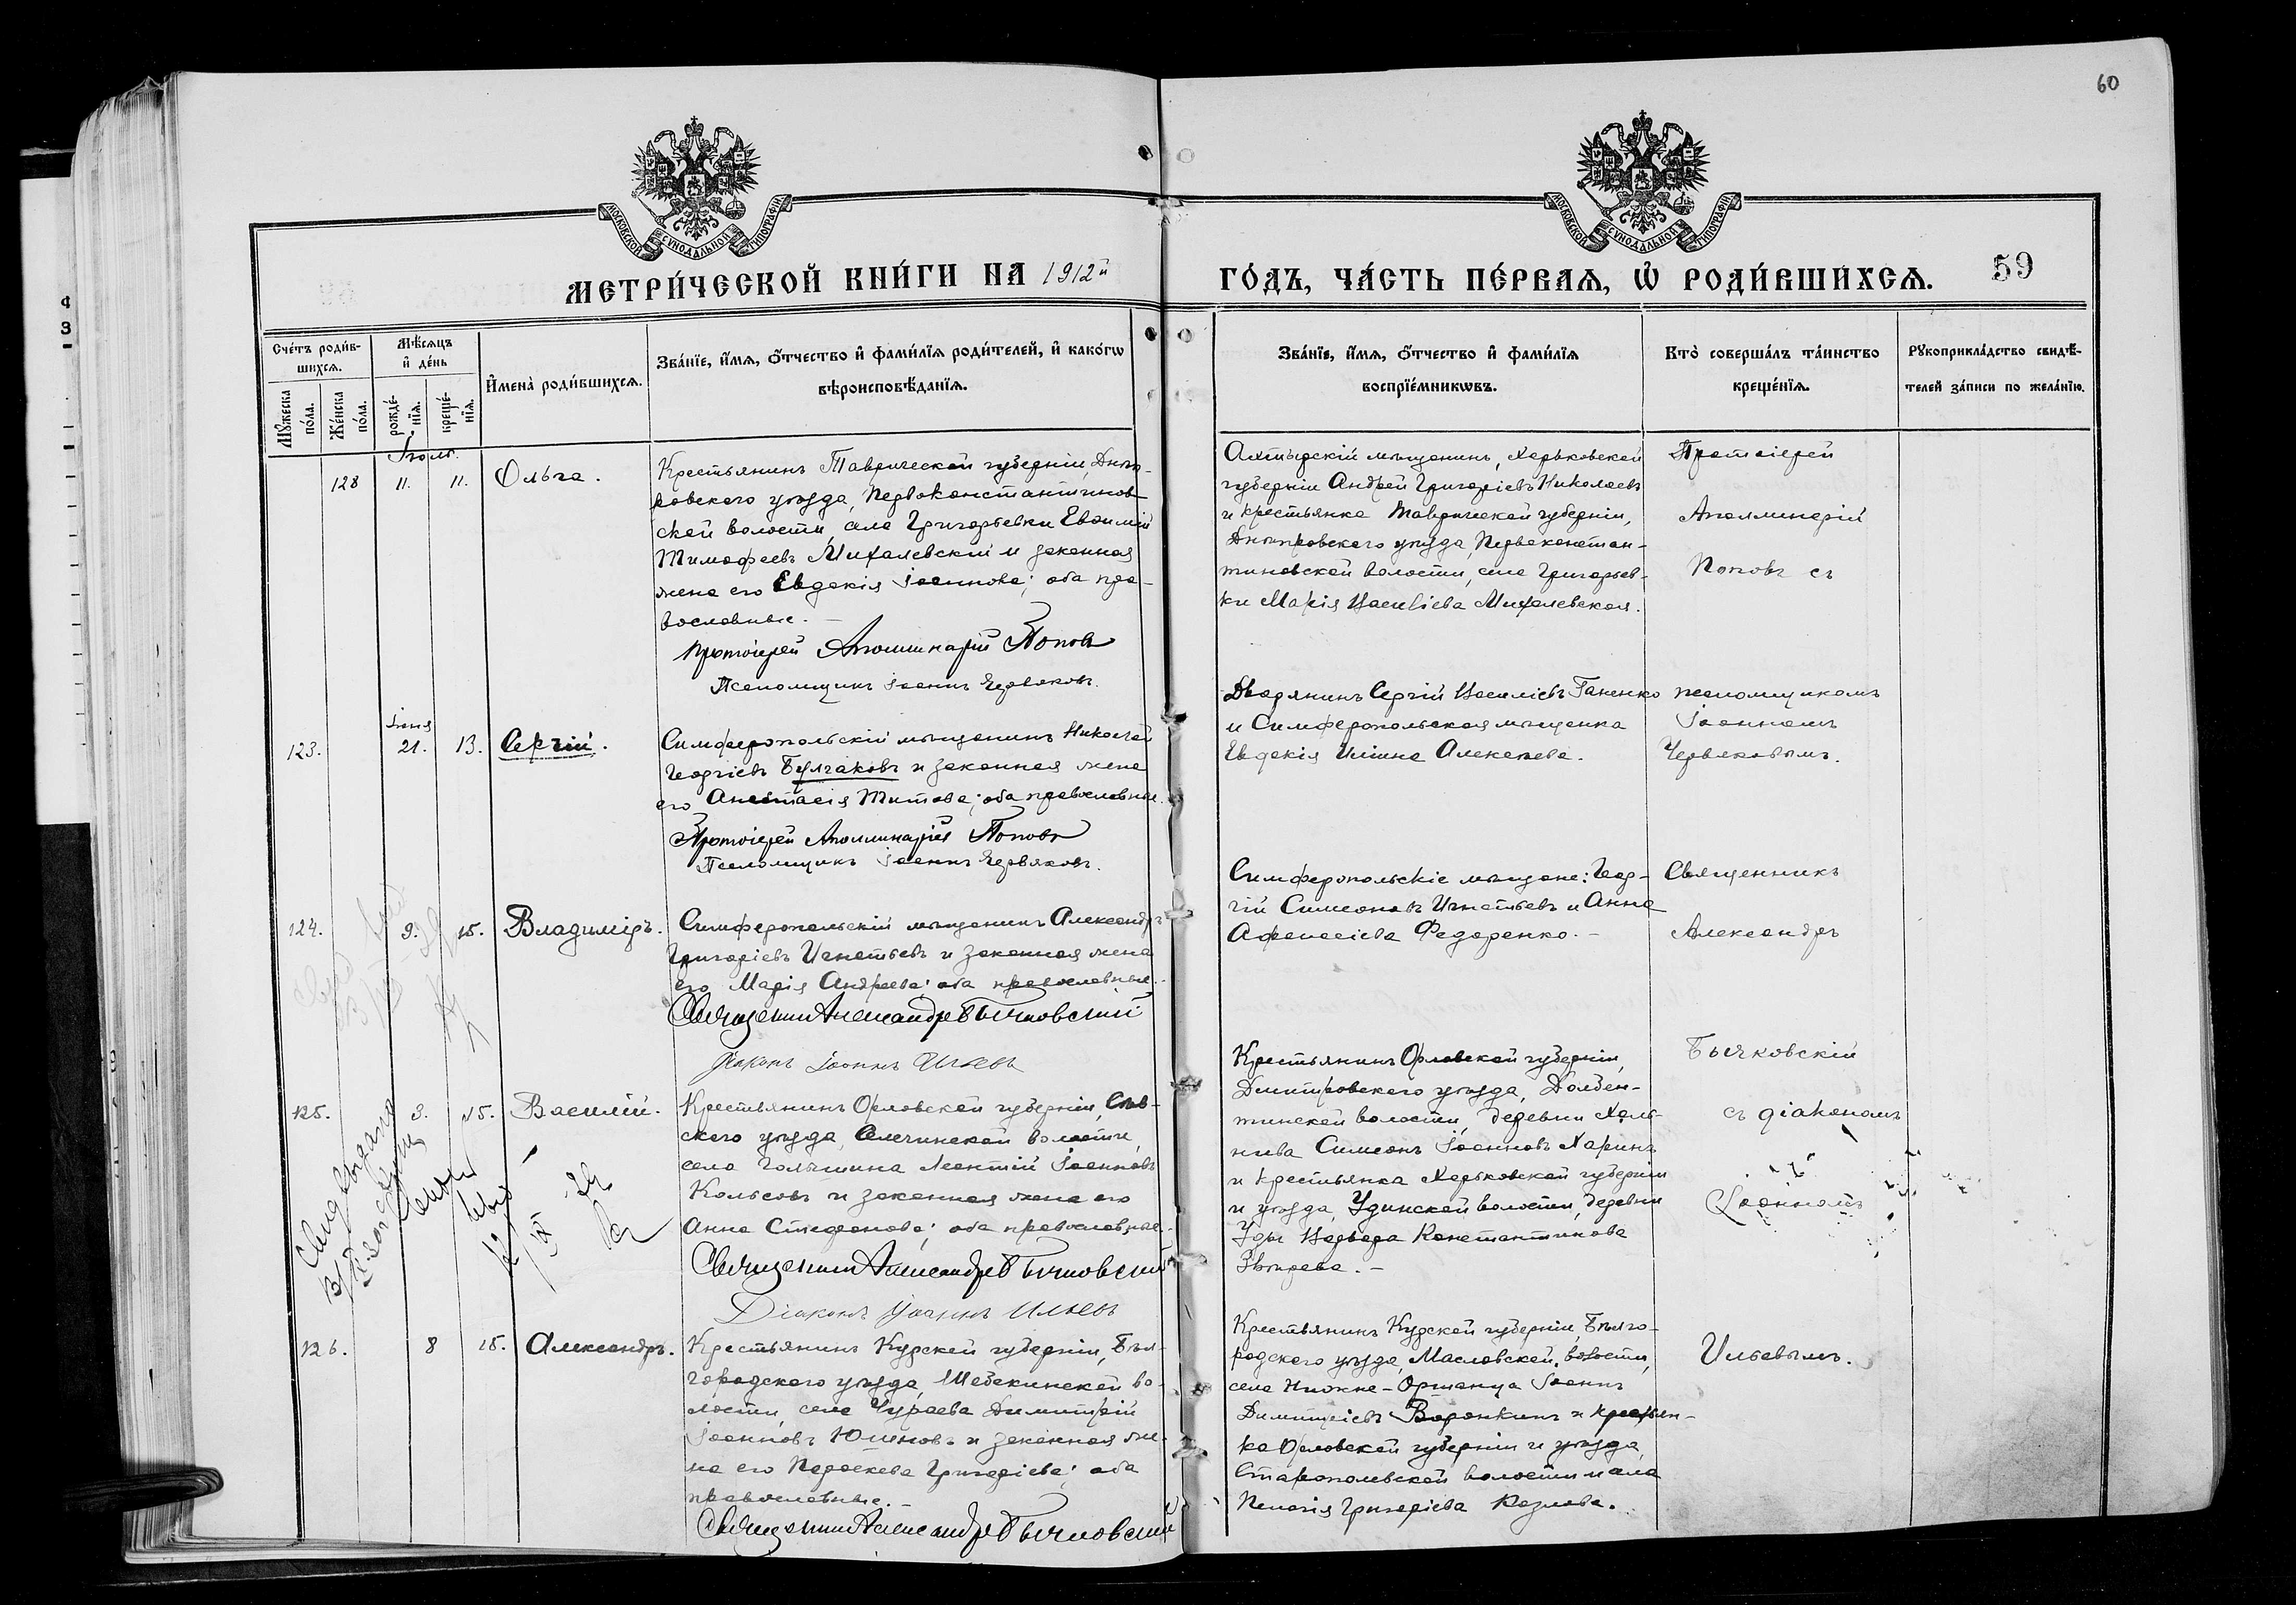 60
МОСКОВСКОЙ СУНОДАЛЬНОЙ ТИПОГРАФІИ
МОСКОВСКОЙ СУНОДАЛЬНОЙ ТИПОГРАФІИ
МЕТРИ́ЧЕСКОЙ КНИ́ГИ НА 1912й
ГО́ДЪ, ЧА́СТЬ ПЕ́РВАѦ, Ѡ҆ РОДИ́ВШИХСѦ. 59
Сче́тъ роди́в-
шихсѧ.
Мꙋ́жеска по́ла.
Же́нска по́ла.
Мѣ́сѧцъ
и҆ де́нь
рожде́-нїѧ.
креще́-нїѧ.
И҆мена̀ роди́вшихсѧ.
Зва́нїе, и҆́мѧ, ѻ҆́тчество и҆ фами́лїѧ роди́телей, и҆ како́гѡ
вѣроисповѣ́данїѧ.
Зва́нїе, и҆́мѧ, ѻ҆́тчество и҆ фами́лїѧ
воспрїе́мникѡвъ.
Кто̀ соверша́лъ та́инство
креще́нїѧ.
Рꙋкоприкла́дство свидѣ́-
телей за́писи по жела́нїю.
Іюль.
128 11. 11. Ольга.
Крестьянинъ Таврической губерніи, Днѣп-
ровского уѣзда, Первоконстантинов-
ской волости, села Григорьевки Евѳимій
Тимофеевъ Михалевскій и законная
жена его Евдокія Іоаннова; оба пра-
вославные.
Протоіерей Аполлинарій Поповъ
Псаломщикъ Іоаннъ Червяковъ.
Ахтырскій мѣщанинъ, Харьковской
губерніи Андрей Григоріевъ Николаевъ
и крестьянка Таврической губерніи,
Днѣпровского уѣзда, Первоконстан-
тиновской волости, села Григорьев-
ки Марія Васильева Михалевская.
Протоіерей
Аполлинарій
Поповъ съ
псаломщикомъ
Іоанномъ
Червяковымъ.
Іюня
123. 21. 13. Сергій.
Симферопольскій мѣщанинъ Николай
Георгіевъ Булгаковъ и законная жена
его Анастасія Титова; оба православные.
Протоіерей Аполлинарій Поповъ
Псаломщикъ Іоаннъ Червяковъ.
Дворянинъ Сергій Василіевъ Ганенко
и Симферопольская мѣщанка
Евдокія Ильина Алексеева.
124. 9. 15. Владиміръ.
Симферопольскій мѣщанинъ Александръ
Григоріевъ Игнатьевъ и законная жена
его Марія Андреева; оба православные.
Священникъ Александръ Бычковскій
Діаконъ Іоаннъ Ильевъ
Симферопольскіе мѣщане: Геор-
гій Симеоновъ Игнатьевъ и Анна
Афанасіева Федоренко.
Священникъ
Александръ
Бычковскій
съ діакономъ
Іоанномъ
Ильевымъ.
125. 3. 15. Василій.
Крестьянинъ Орловской губерніи, Сѣв-
ского уѣзда, волости,
села Леонтій Іоанновъ
Кольсовъ и законная жена его
Анна Стефанова; оба православные.
Священникъ Александръ Бычковскій
Діаконъ Іоаннъ Ильевъ
Крестьянинъ Орловской губерніи,
Дмитровского уѣзда, Долбен-
кинской волости, деревни
Симеонъ Іоанновъ Харинъ
и крестьянка Харьковской губерніи
и уѣзда, Удянской волости, деревни
Уды Варвара Константинова
Свид выдана
126. 8 15. Александръ.
Крестьянинъ Курской губерніи, Бѣл-
городского уѣзда, Шебекинской во-
лости, села Чураева Димитрій
Іоанновъ Юшновъ и законная же-
на его Параскева Григоріева; оба
православные.
Священникъ Александръ Бычковскій
Крестьянинъ Курской губерніи, Бѣлго-
родского уѣзда, Масловской волости,
села Іоаннъ
Димитріевъ Воронкинъ и крестьян-
ка Орловской губерніи и уѣзда,
волости и села
Пелагія Григоріева Козлова.